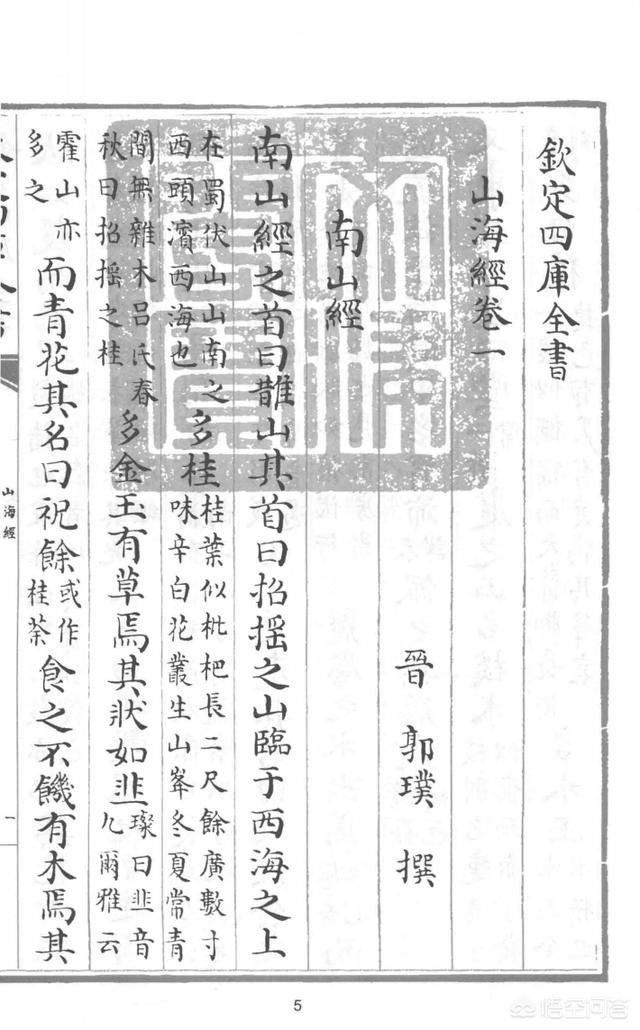 欽定四庫全書
山海經卷一
晉 郭璞 撰
南山經
南山經之首曰䧿山其首曰招摇之山臨于西海之上
在蜀伏山山南之西頭濱西海也多桂桂葉似枇杷長二尺餘廣數寸味辛白花叢生山峯冬夏常青
間無雜木吕氏春秋曰招摇之桂多金玉有草焉其狀如韭璨曰韭音九爾雅云
霍山亦多之而青花其名曰祝餘或作桂荼食之不饑有木焉其
山海經
一
5
悟空问答